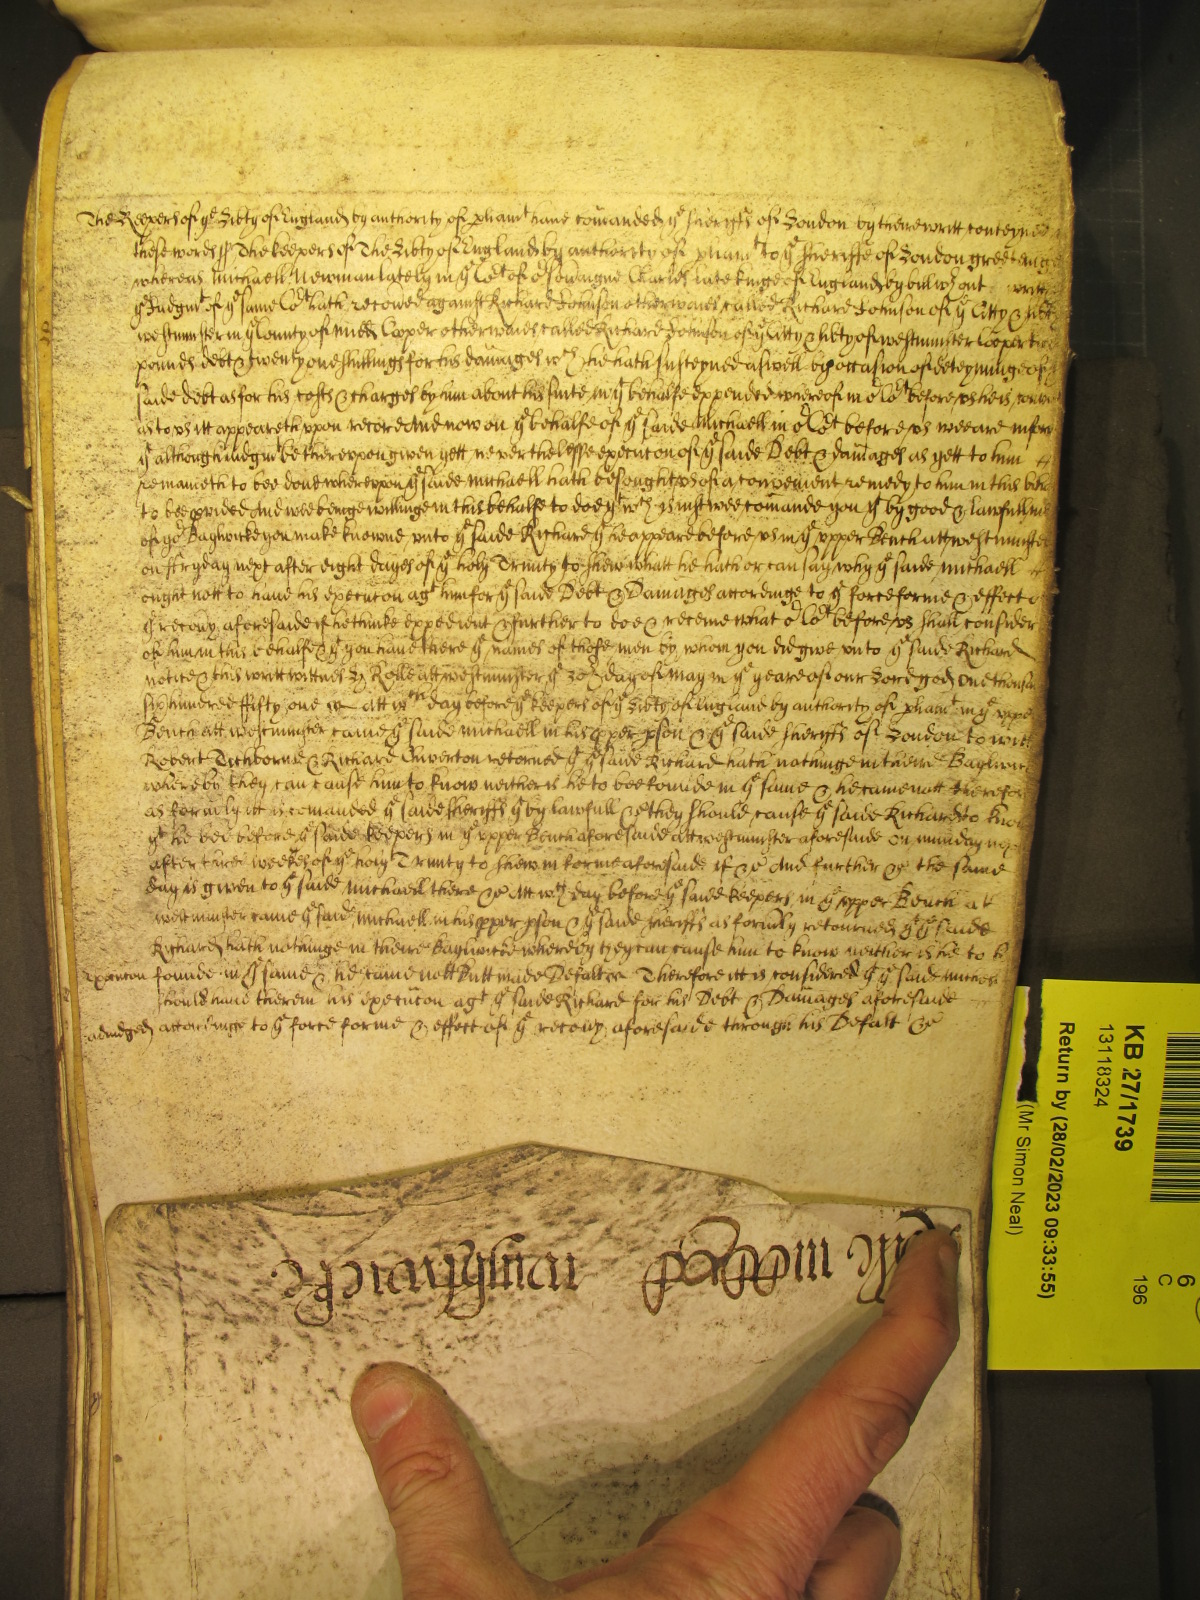 The Keepers of ye Libty of England by authority of pliamt have comanded ye sheriffs of London by theire writt conteyned
these words ss The keepers of The Libty of England by authority of pliamt to ye sheriffe of London greeteinge
whereas Michaell Newman lately in ye Cort of or Sovaigne Charles late kinge of England by bill wthout writt
ye Judgmt of ye same Cort hath recovered against Richard Johnson otherwaies called Richard Johnson of ye Citty & Libty
westminster in ye County of Midd Cooper otherwaies called Richard Johnson of ye Citty & libty of westminster Cooper
pounds debt & twenty one shillings for his damages wch he hath susteyned aswell by occasion of deteyninge of ye
saide debt as for his costs & charges by him about his suite in yt behalfe expended whereof in or Cort before us he is
as to us itt appeareth uppon record And now on ye behalfe of ye saide Michaell in or Cort before us wee are
yt although Judgmt be thereuppon given yett neverthelesse execucon of ye saide Debt & damages as yett to him
remaineth to bee done whereuppon ye saide Michaell hath besought us of a convenient remedy to him in this
to bee pvided And wee beinge willinge in this behalfe to doe yt wch is just wee comande you yt by good & lawfull
of yor Baylwicke you make knowne unto ye saide Richard yt he appeare before us in ye upper Bench att westminster
on fryday next after eight dayes of ye holy Trinity to shew what he hath or can say why ye saide Michaell
ought nott to have his execucon agt him for ye saide Debt & Damages accordinge to ye force forme & effect
ye recovy aforesaide if he thinke expedient & further to doe & receive what or Cort before us shall consider
of him in this behalfe & yt you have there ye names of those men by whom you did give unto ye saide Richard
notice & this writt wittnes H Rolle att westminster ye day of May in ye yeare of our Lord god One thousand
six hundred fifty one att wch day before ye keepers of ye Libty of England by authority of pliamt in ye upper
Bench att westminster came ye saide Michaell in his pper pson & ye saide sheriffs of London to wit
Robert Tichborne & Richard Chiverton returned yt ye saide Richard hath nothinge in theire Baylwicke
whereby they can cause him to know neither is he to bee founde in ye same & he came nott therefore
as formly itt is comanded ye saide sheriffs yt by lawfull &c they should cause ye saide Richard to know
yt he bee before ye saide keepers in ye upper Bench aforesaide att westminster aforesaide on munday
after three weekes of ye holy Trinity to shew in forme aforesaide if &c And further &c the same
day is given to ye saide Michaell there &c Att wch day before ye saide keepers in ye upper Bench at
westminster came ye saide Michaell in his pper pson & ye saide sheriffs as formly returned yt ye saide
Richard hath nothinge in theire Baylwicke whereby they can cause him to know neither is he to
Execucon founde in ye same & he came nott Butt made Defalte Therefore itt is considered yt ye saide
should have therein his execucon agt ye saide Richard for his Debt & Damages aforesaide
adiudged accordinge to ye force forme & effect of ye recovy aforesaide through his Defalt &c
KB 27/1739
13118324
Return by (28/02/2023 09:33:55)
(Mr Simon Neal)
6
C
196